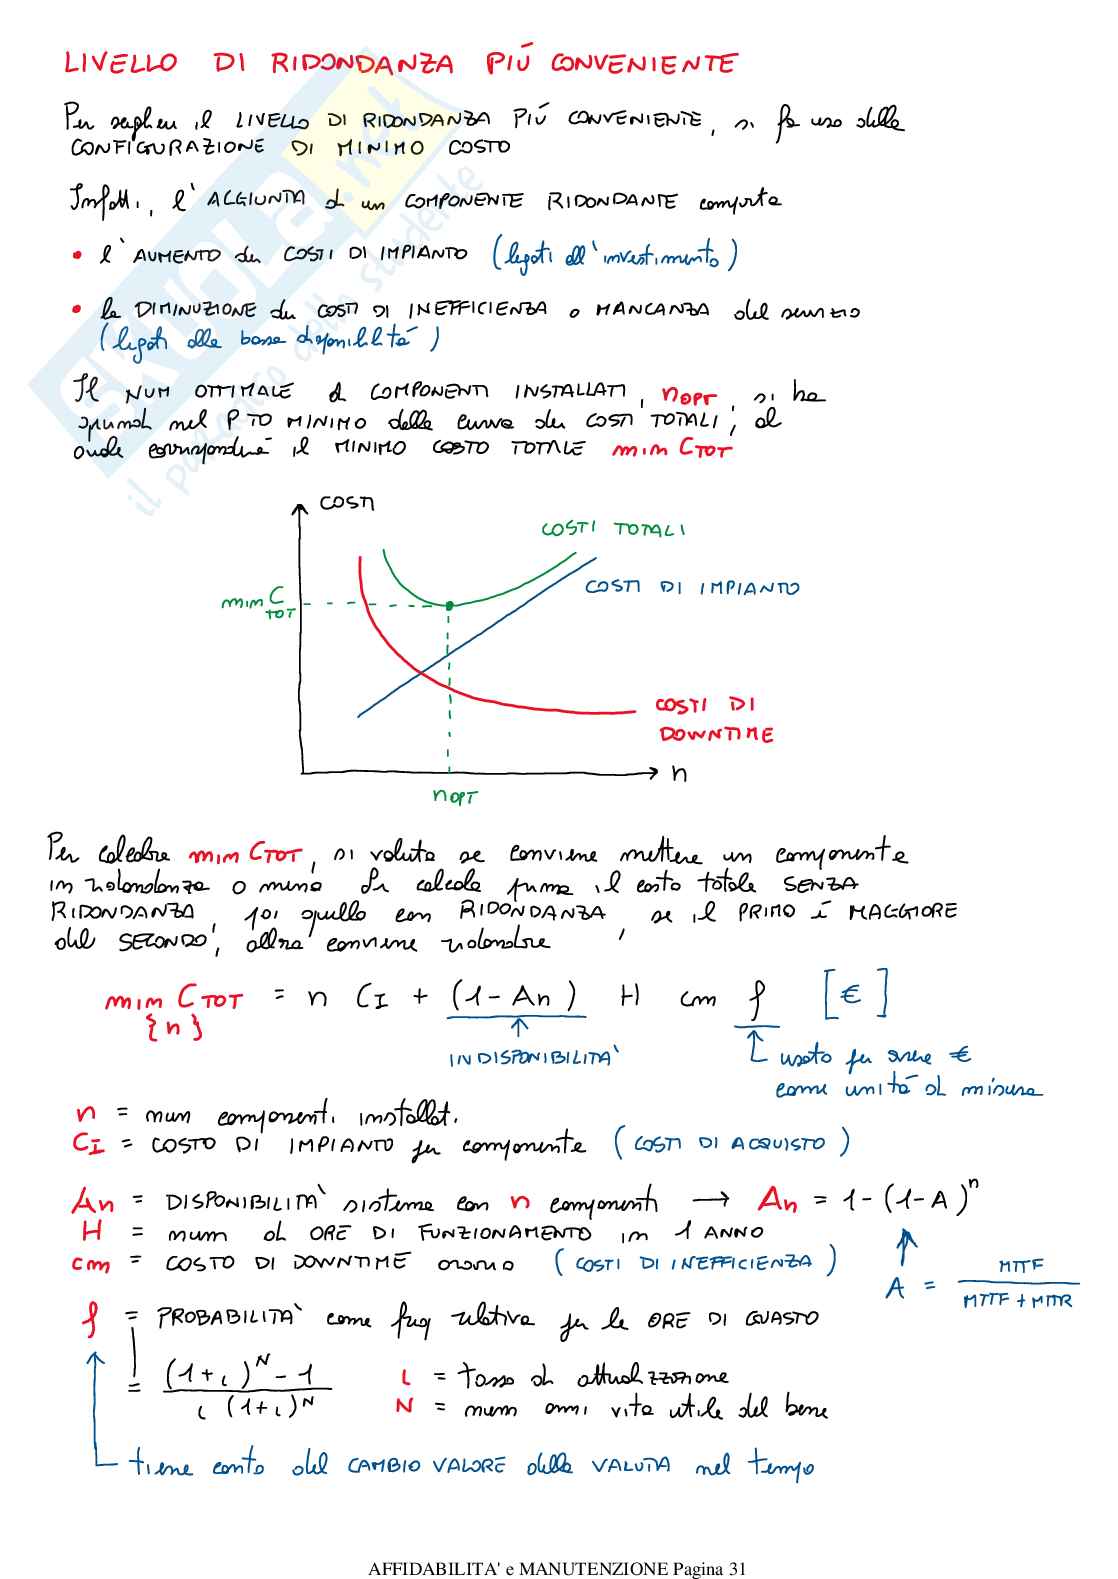 LIVELLO DI RIDONDANZA PIÚ CONVENIENTE
Per scegliere il LIVELLO DI RIDONDANZA PIÚ CONVENIENTE, si fa uso della
CONFIGURAZIONE DI MINIMO COSTO
Infatti, l'AGGIUNTA di un COMPONENTE RIDONDANTE comporta
• l'AUMENTO dei COSTI DI IMPIANTO (legati all'investimento)
• la DIMINUZIONE dei COSTI DI INEFFICIENZA o MANCANZA del servizio
(legati alla bassa disponibilitá)
Il NUM OTTIMALE di COMPONENTI INSTALLATI, nOPT, si ha
quindi nel PTO MINIMO della curva dei COSTI TOTALI, al
quale corrisponderá il MINIMO COSTO TOTALE min CTOT
COSTI
COSTI TOTALI
COSTI DI IMPIANTO
min CTOT
COSTI DI
DOWNTIME
n
nOPT
Per calcolare min CTOT, si valuta se conviene mettere un componente
in ridondanza o meno Si calcola prima il costo totale SENZA
RIDONDANZA, poi quello con RIDONDANZA, se il PRIMO é MAGGIORE
del SECONDO, allora conviene ridondare
min CTOT = n CI + (1 - An) H cm f [€]
{n}
INDISPONIBILITA'
usato per avere €
come unitá di misura
n = num componenti installati
CI = COSTO DI IMPIANTO per componente (COSTI DI ACQUISTO)
An = DISPONIBILITA' sistema con n componenti → An = 1 - (1 - A)^n
H = num di ORE DI FUNZIONAMENTO in 1 ANNO
cm = COSTO DI DOWNTIME orario (COSTI DI INEFFICIENZA)
A = MTTF / (MTTF + MTTR)
f = PROBABILITA' come freq relativa per le ORE DI GUASTO
= ((1+i)^N - 1) / (i (1+i)^N)
i = tasso di attualizzazione
N = num anni vita utile del bene
tiene conto del CAMBIO VALORE della VALUTA nel tempo
SKUOLA.net
il paradiso dello studente
AFFIDABILITA' e MANUTENZIONE Pagina 31